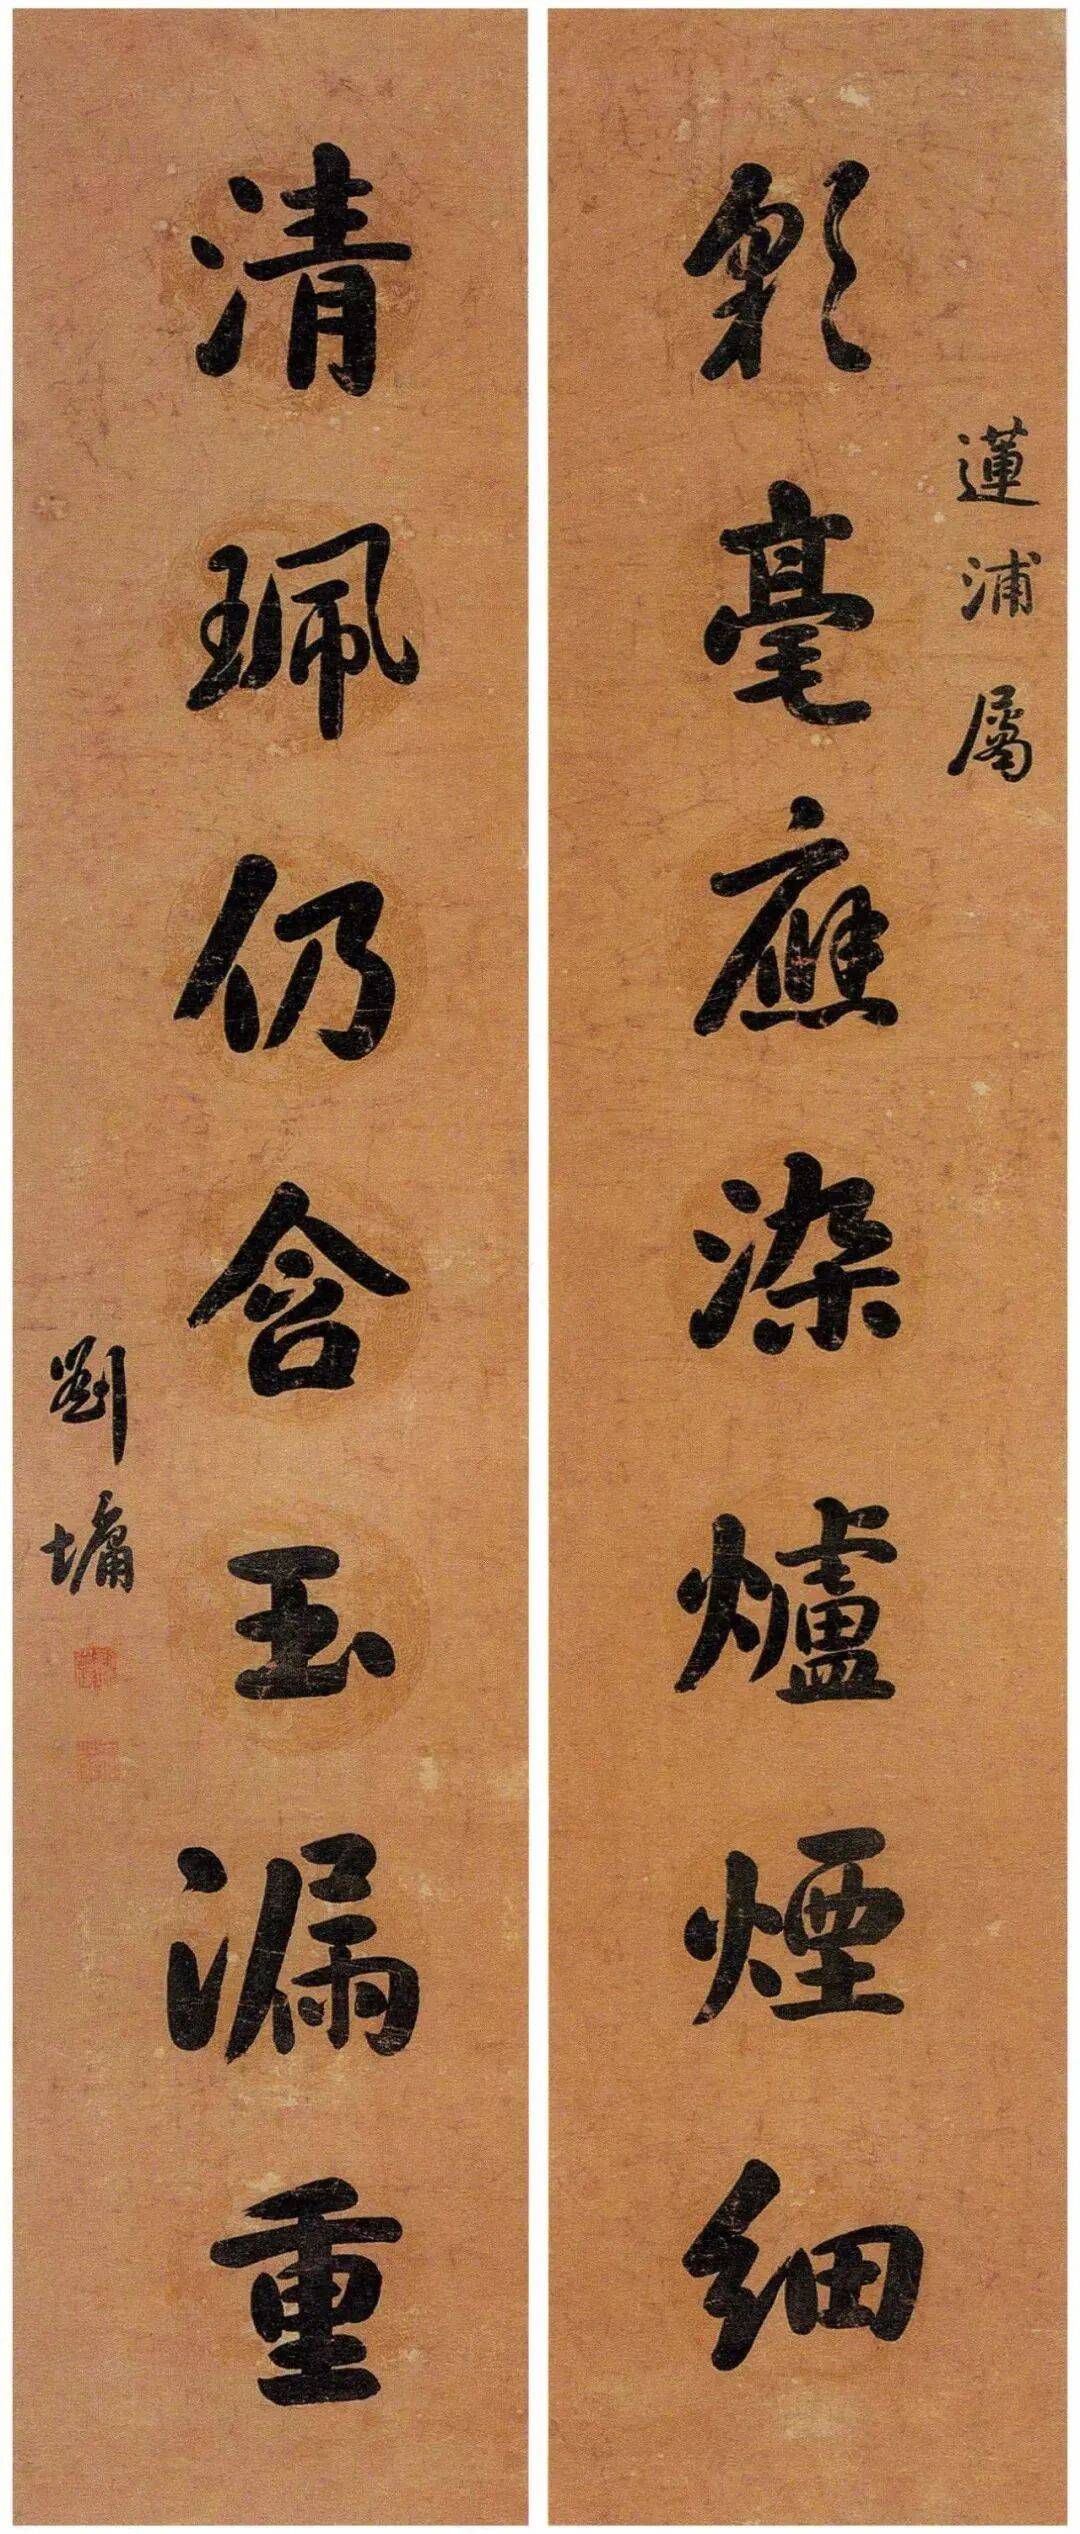 彩毫應染爐煙細
蓮浦屬
清珮仍含玉漏重
劉墉